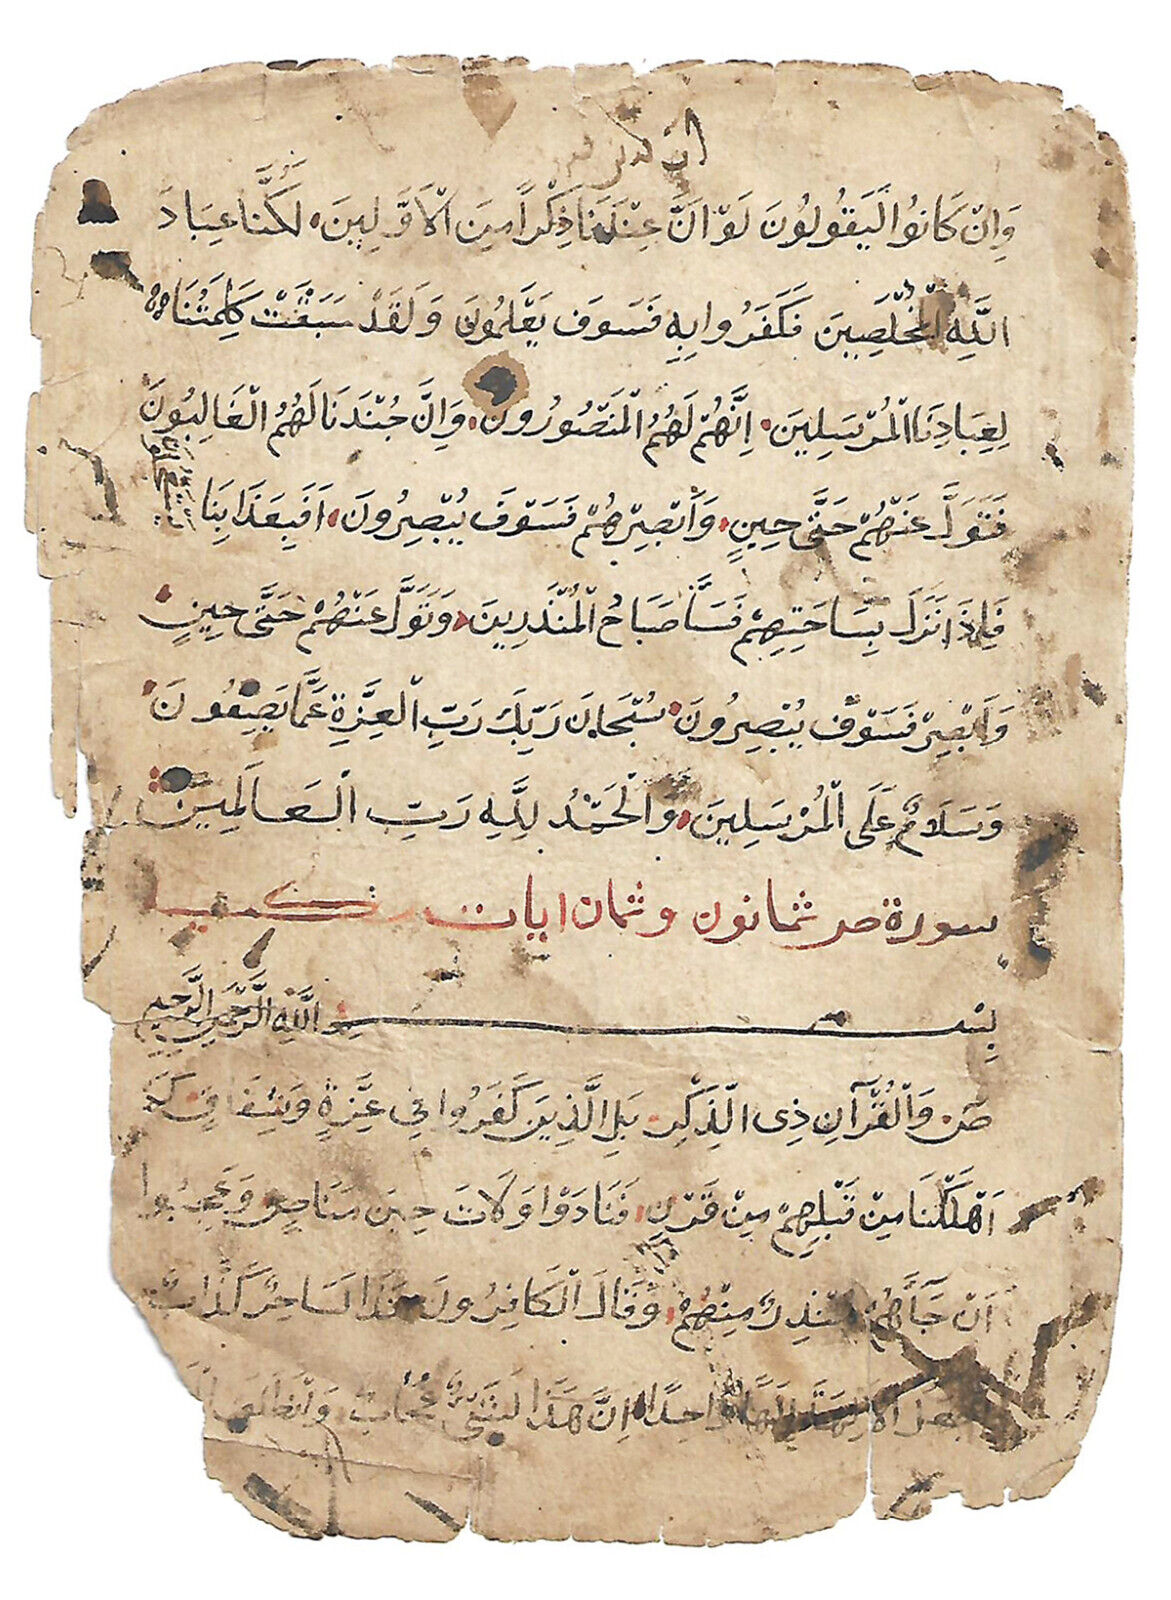 وَاِنْ كَانُوا لَيَقُولُونَ لَوْ اَنَّ عِنْدَنَا ذِكْرًا مِنَ الْاَوَّلِينَ لَكُنَّا عِبَادَ
اللَّهِ الْمُخْلَصِينَ فَكَفَرُوا بِهِ فَسَوْفَ يَعْلَمُونَ وَلَقَدْ سَبَقَتْ كَلِمَتُنَا
لِعِبَادِنَا الْمُرْسَلِينَ اِنَّهُمْ لَهُمُ الْمَنْصُورُونَ وَاِنَّ جُنْدَنَا لَهُمُ الْغَالِبُونَ
فَتَوَلَّ عَنْهُمْ حَتَّى حِينٍ وَاَبْصِرْهُمْ فَسَوْفَ يُبْصِرُونَ اَفَبِعَذَابِنَا
فَاِذَا نَزَلَ بِسَاحَتِهِمْ فَسَآءَ صَبَاحُ الْمُنْذَرِينَ وَتَوَلَّ عَنْهُمْ حَتَّى حِينٍ
وَاَبْصِرْ فَسَوْفَ يُبْصِرُونَ سُبْحَانَ رَبِّكَ رَبِّ الْعِزَّةِ عَمَّا يَصِفُونَ
وَسَلَامٌ عَلَى الْمُرْسَلِينَ وَالْحَمْدُ لِلَّهِ رَبِّ الْعَالَمِينَ
سورة ص ثمانون وثمان ايات
بِسْمِ اللَّهِ الرَّحْمَنِ الرَّحِيمِ
صٓ وَالْقُرْآنِ ذِى الذِّكْرِ بَلِ الَّذِينَ كَفَرُوا فِي عِزَّةٍ وَشِقَاقٍ كَمْ
اَهْلَكْنَا مِنْ قَبْلِهِمْ مِنْ قَرْنٍ فَنَادَوْا وَلَاتَ حِينَ مَنَاصٍ وَعَجِبُوا
اَنْ جَآءَهُمْ مُنْذِرٌ مِنْهُمْ وَقَالَ الْكَافِرُونَ هَذَا سَاحِرٌ كَذَّابٌ
اَجَعَلَ الْآلِهَةَ اِلَهًا وَاحِدًا اِنَّ هَذَا لَشَيْءٌ عُجَابٌ وَانْطَلَقَ